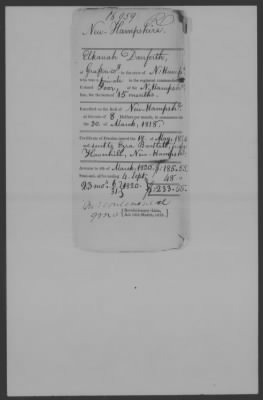 16.959
New-Hampshire.
Elkanah Danforth,
of Grafton Co. in the state of N. Hamps.
who was a private in the regiment commanded by
Colonel Poor, of the N. Hampshr.
line, for the term of 15 months.
Inscribed on the Roll of New-Hampshr.
at the rate of 8 Dollars per month, to commence on
the 20 of March, 1818.
Certificate of Pension issued the 18 of May, 1820
and sent to Ezra Bartlett,
Haverhill, New Hampshr.
Arrears to 4th of March, 1820
Semi-anl. all'ce ending 4 Sept.
48.
$.233.55.
Revolutionary claim,
Act 18th March, 1818.